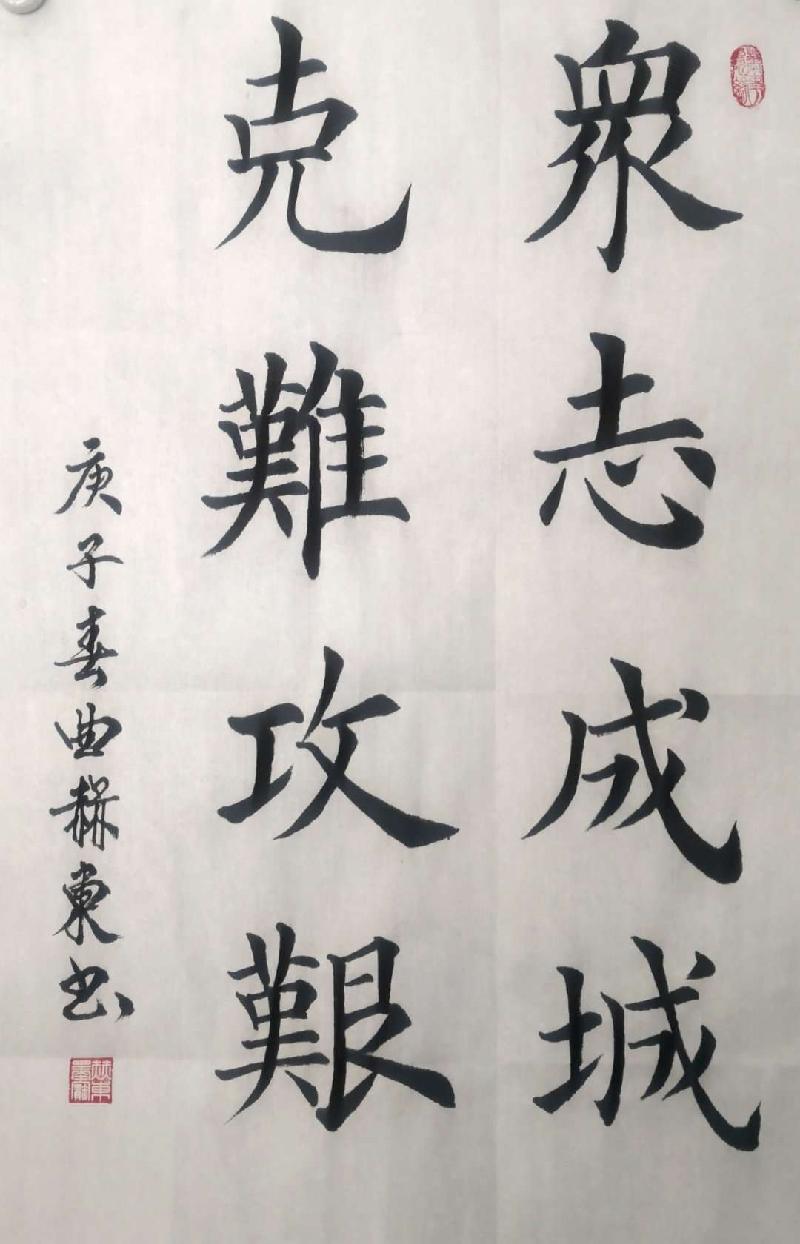 衆志成城
克難攻艱
庚子春曲赫東书